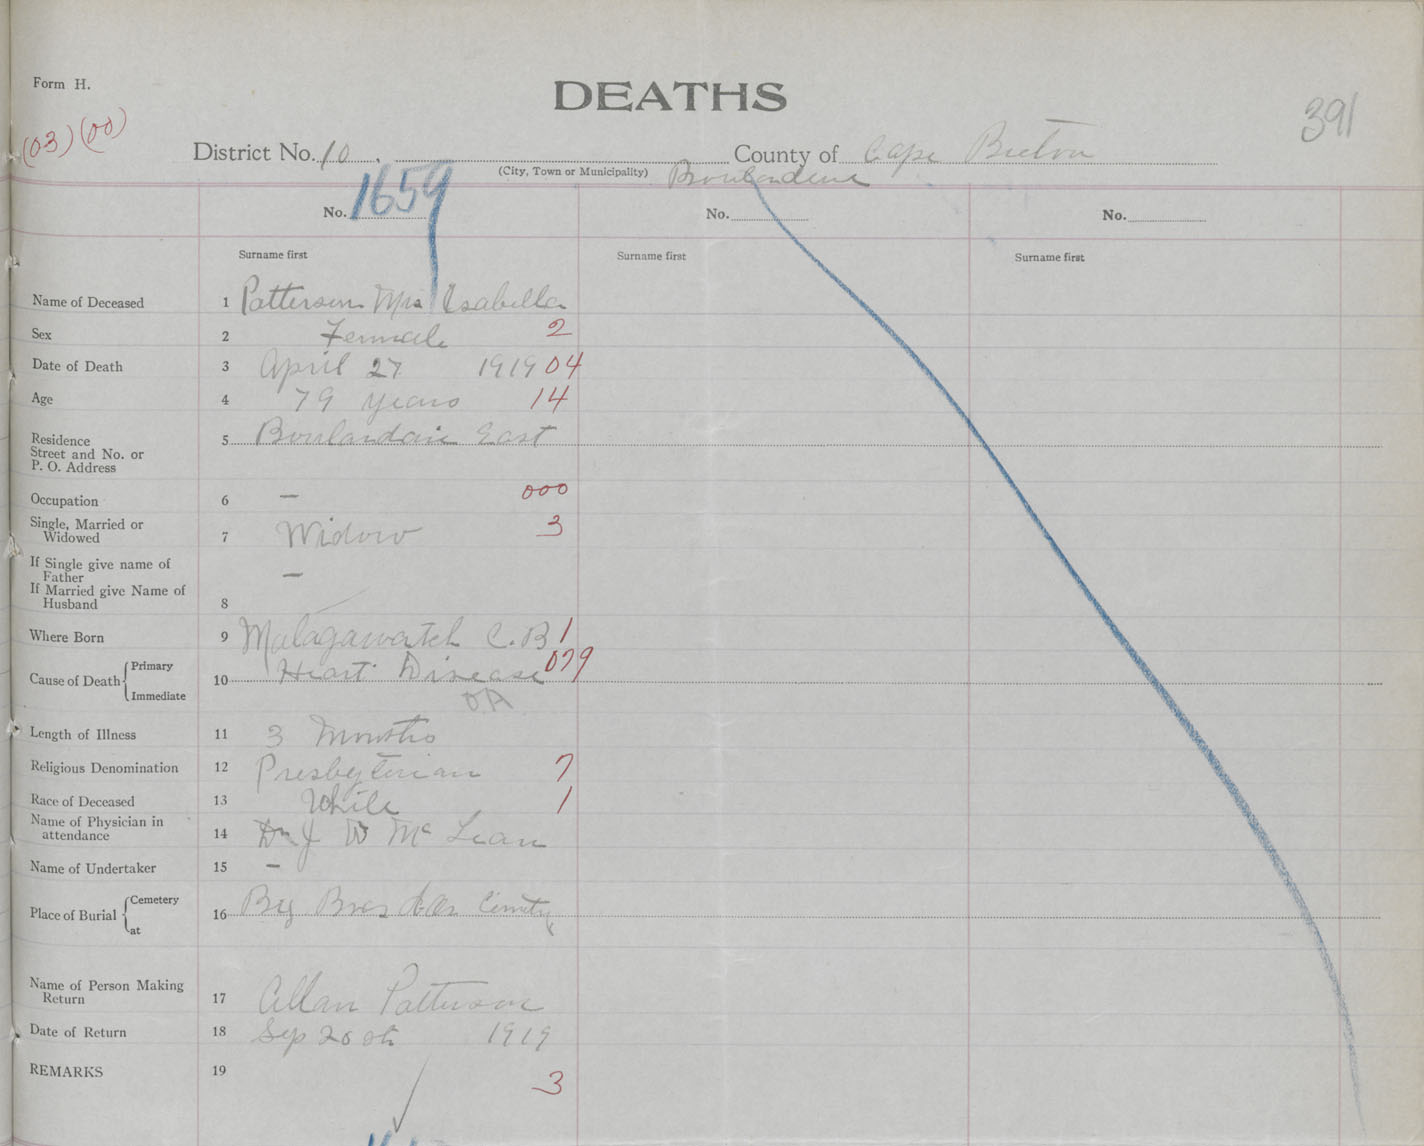 Form H.
DEATHS
391
(03) (00)
District No. 10 , County of Cape Breton
(City, Town or Municipality)
No. 1659 No. No.
Surname first Surname first Surname first
Name of Deceased 1 Patterson Mrs Isabella
Sex 2 Female 2
Date of Death 3 April 27 1919 04
Age 4 79 years 14
Residence 5 Boulardarie East
Street and No. or
P. O. Address
Occupation 6 — 000
Single, Married or
Widowed 7 Widow 3
If Single give name of
Father —
If Married give Name of
Husband 8
Where Born 9 Malagawatch C.B 1
Cause of Death { Primary 10 Heart Disease 079
Immediate
Length of Illness 11 3 Months
Religious Denomination 12 Presbyterian 7
Race of Deceased 13 White 1
Name of Physician in
attendance 14 Dr J W Mc Lean
Name of Undertaker 15 —
Place of Burial { Cemetery 16 Big Bras dor
at
Name of Person Making
Return 17 Allan Patterson
Date of Return 18 Sep 1919
REMARKS 19
3